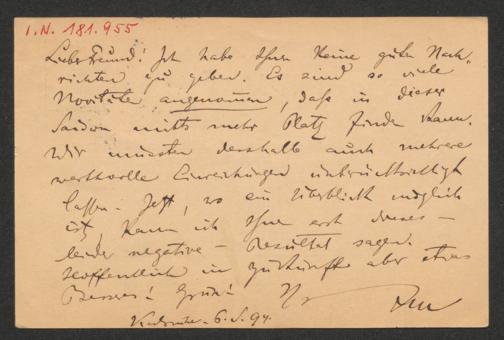 I.N. 181.955
Lieber Freund! Ich habe Ihnen keine guten Nach-
richten zu geben. Es sind so viele
Novitäten angenommen, daß in dieser
Saison nichts mehr Platz finden kann.
Wir mussten deshalb auch mehrere
werthvolle Einreichungen unberücksichtigt
lassen. Jetzt, wo ein Überblick möglich
ist, kann ich Ihnen erst dieses –
leider negative – Resultat sagen.
Hoffentlich in Zukunft aber etwas
Besseres! Gruß! Ihr
Karlsruhe. 6. 94.